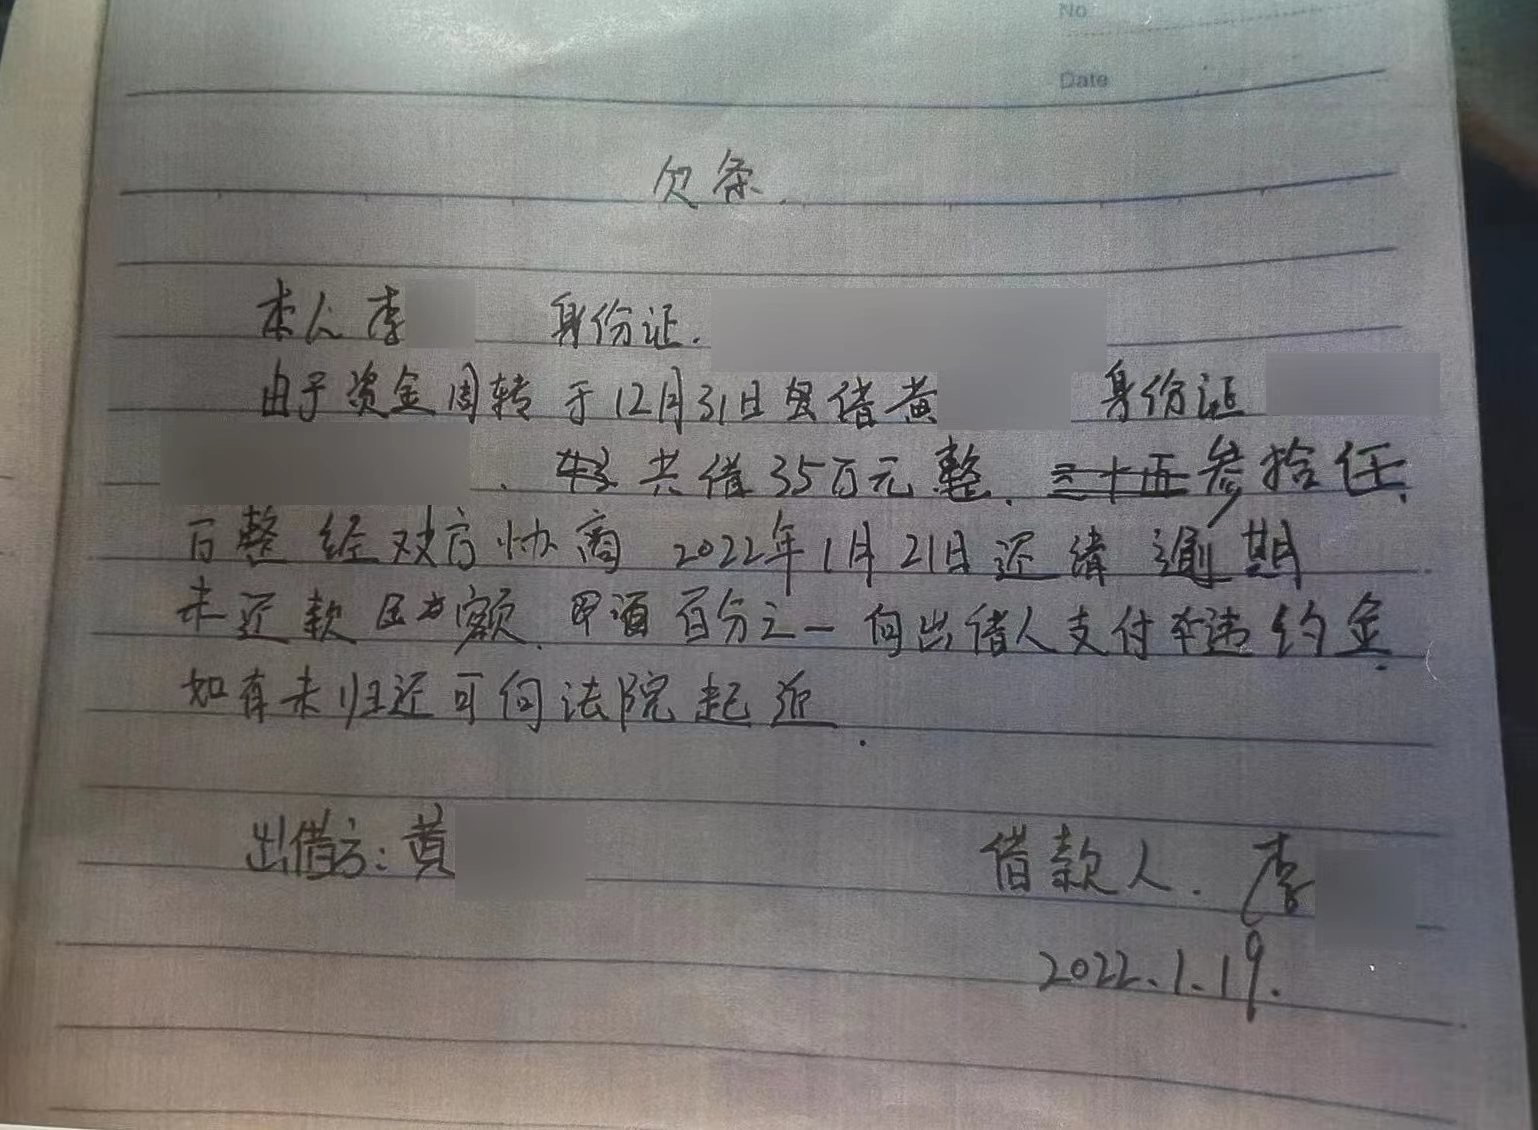 No
Date
欠条.
本人李 身份证.
由于资金周转于12月31日 借黄 身份证
. 共借35万元整. 三十五 参拾伍
万整 经对方协商 2022年1月21日还清 逾期
未还款 金额. 甲酒百分之一向出借人支付 违约金.
如有未归还可向法院起
出借方:黄
借款人. 李
2022.1.19.